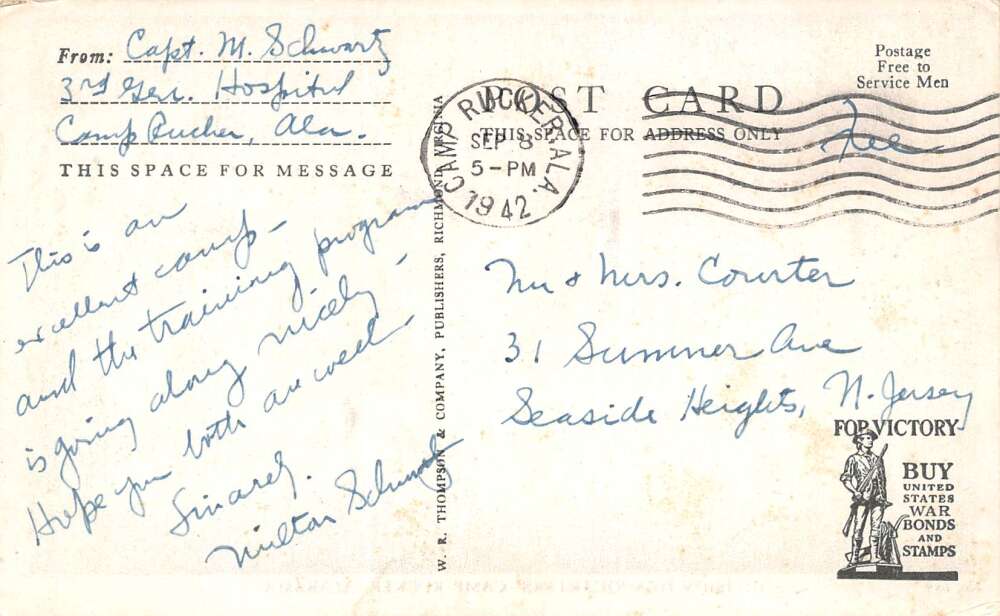 From: Capt. M. Schwartz
3rd Gen. Hospital
Camp Rucker, Ala.
THIS SPACE FOR MESSAGE
This is an
excellent camp –
and the training program
is going along nicely –
Hope you both are well –
Sincerely.
Milton Schwartz
W. R. THOMPSON & COMPANY, PUBLISHERS, RICHMOND, VIRGINIA
POST CARD
THIS SPACE FOR ADDRESS ONLY
CAMP RUCKER, ALA.
SEP 8
5-PM
1942
Postage
Free to
Service Men
Free
Mr & Mrs. Courter
31 Sumner Ave
Seaside Heights, N. Jersey
FOR VICTORY
BUY
UNITED
STATES
WAR
BONDS
AND
STAMPS